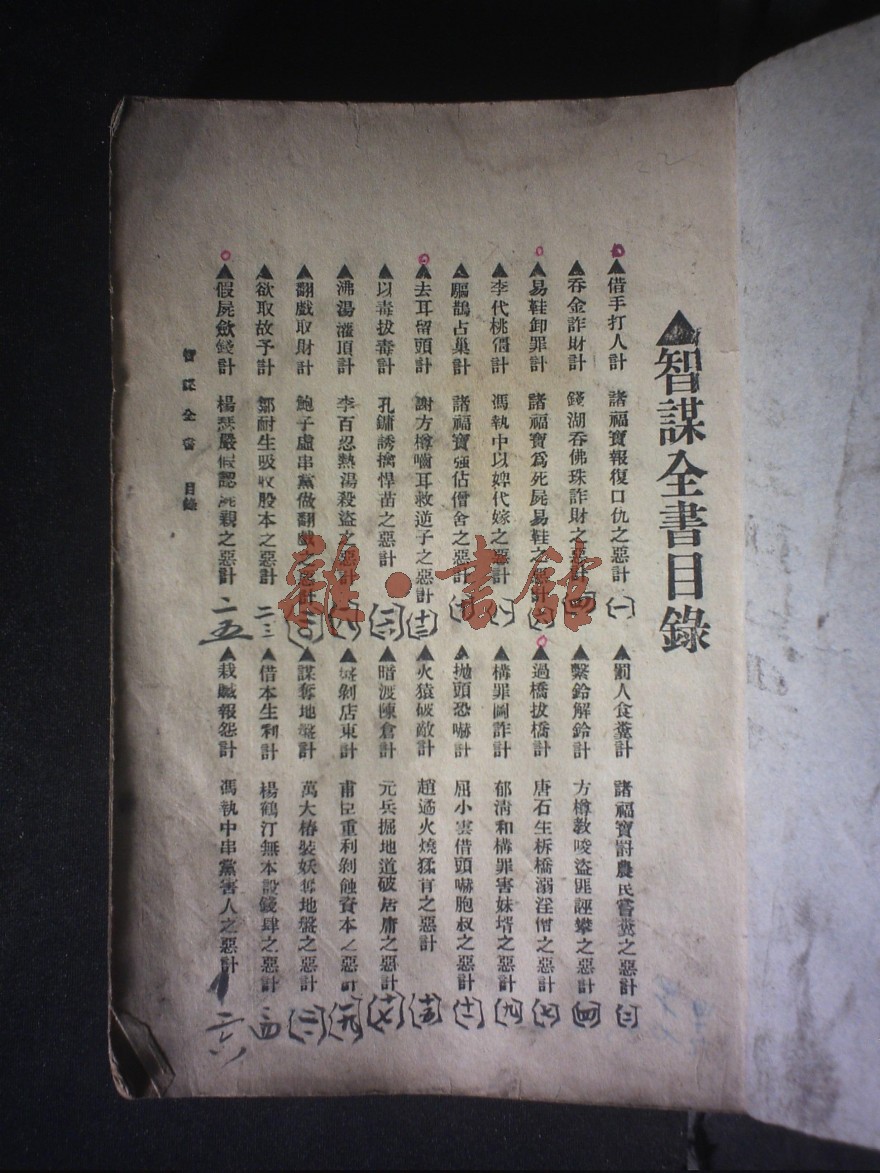 ▲智謀全書目錄
▲借手打人計 諸福寶報復口仇之惡計 (一)
▲罰人食糞計 諸福寶罸農民嘗糞之惡計 (二)
▲吞金詐財計 錢湖吞佛珠詐財之惡計
▲繫鈴解鈴計 方樽教唆盜匪誣攀之惡計 (四)
▲易鞋卸罪計 諸福寶為死屍易鞋之惡計
▲過橋拔橋計 唐石生柝橋溺淫僧之惡計 (七)
▲李代桃僵計 馮執中以婢代嫁之惡計 (八)
▲構罪圖詐計 郁淸和構罪害妹壻之惡計 (九)
▲驅鵲占巢計 諸福寶强佔僧舍之惡計 (十)
▲拋頭恐嚇計 屈小雲借頭嚇胞叔之惡計 (十一)
▲去耳留頭計 謝方樽嚙耳救逆子之惡計 (十二)
▲火猿破敵計 趙遹火燒猛育之惡計 (十五)
▲以毒拔毒計 孔鏞誘擒悍苗之惡計 (十六)
▲暗渡陳倉計 元兵掘地道破居庸之惡計 (十七)
▲沸湯灌頂計 李百忍熱湯殺盜之惡計 (十八)
▲盤剝店東計 甫臣重利剝蝕資本之惡計 (十九)
▲翻戲取財計 鮑子虛串黨做翻戲之惡計 (二〇)
▲謀奪地盤計 萬大椿裝妖奪地盤之惡計
▲欲取故予計 鄒耐生吸收股本之惡計 二三
▲借本生利計 楊鶴汀無本設錢肆之惡計
▲假屍斂錢計 楊瑟嚴假認死親之惡計 二五
▲栽贜報怨計 馮執中串黨害人之惡計 二六
智謀全書 目錄
雜·書館